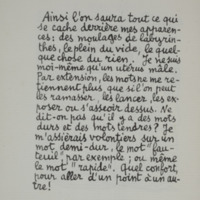 Ainsi l'on saura tout ce qui
se cache derrière mes apparen-
ces: des moulages de labyrin-
thes, le plein du vide, le quel-
que chose du rien. Je ne suis
moi-même qu'un utérus mâle.
Par extension, les mots ne me re-
tiennent plus que si l'on peut
les ramasser, les lancer, les ex-
poser ou s'asseoir dessus. Ne
dit-on pas qu'il y a des mots
durs et des mots tendres? Je
m'assiérais volontiers sur un
mot demi-dur, le mot "fau-
teuil" par exemple; ou même
le mot "rapide". Quel confort,
pour aller d'un point à un au-
tre!